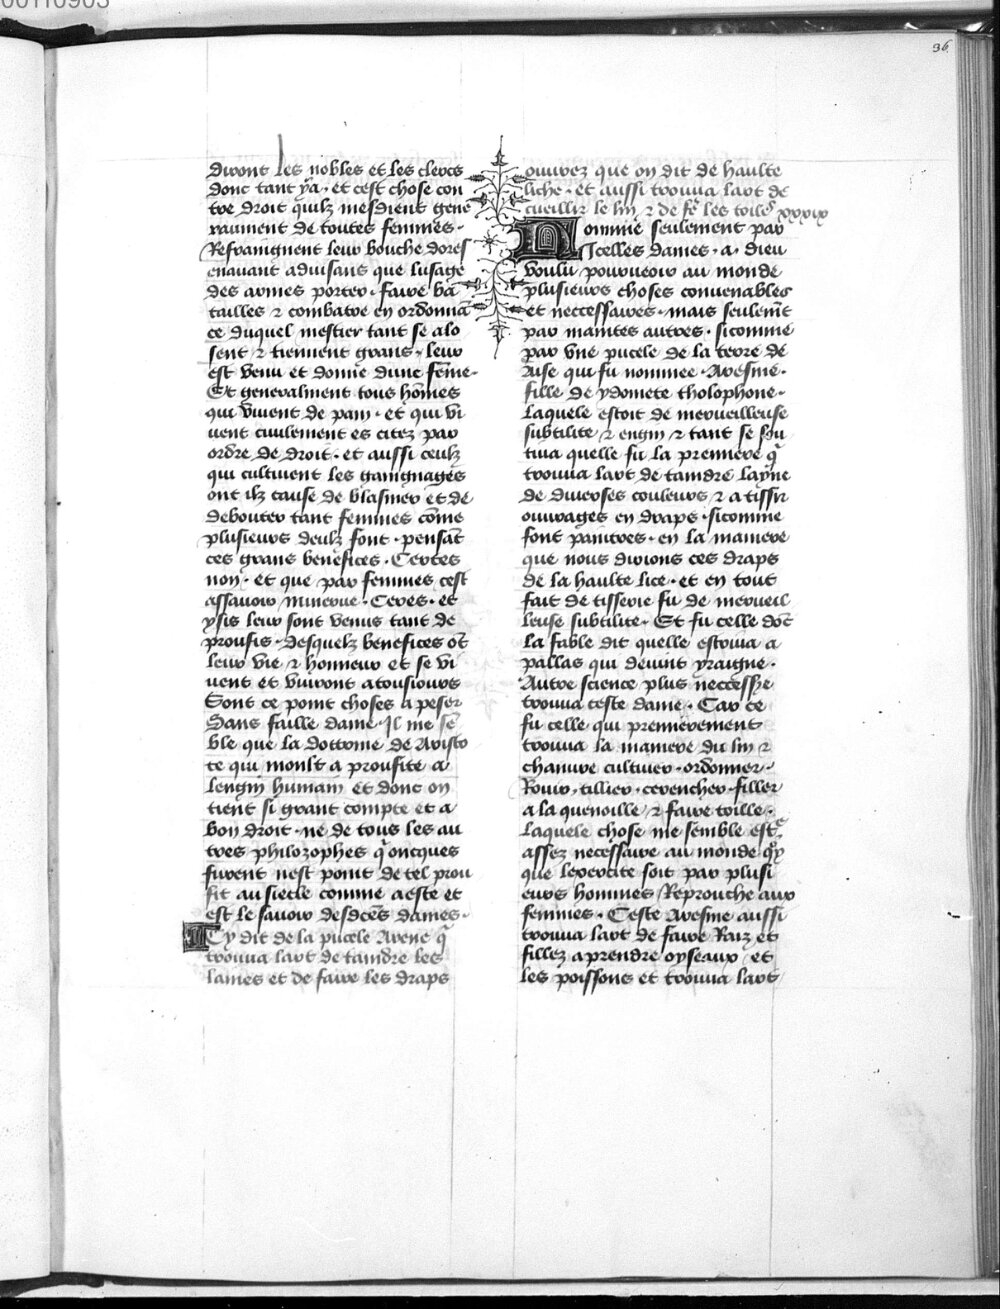 00110903
36
diront les nobles et les clercs
donc tant y a · et cest chose con
tre droit quilz mesdient gene
raument de toutes femmes ·
Refraingnent leur bouche dores
enauant aduisans que lusage
des armes porter · faire ba
tailles ⁊ combatre en ordonnā
ce duquel mestier tant se alo
sent ⁊ tiennent grans · leur
est venu et donne dune fēme ·
Et generalment tous hōmes
qui viuent de pain · et qui vi
uent ciuilement es citez par
ordre de droit · et aussi ceulz
qui cultiuent les gaingnages
ont ilz cause de blasmer et de
debouter tant femmes cōme
plusieurs deulz font · pensāt
ces grans benefices · Certes
non · et que par femmes cest
assauoir minerue · Ceres · et
ysis leur sont venus tant de
proufis · desquelz benefices ōt
leur vie ⁊ honneur et se vi
uent et viuront atousiours
Sont ce point choses a peser
Sans faille dame · Il me sē
ble que la dottrine de Aristo
te qui moult a proufite a
lengin humain et donc on
tient si grant compte et a
bon droit · ne de tous les au
tres philozophes q̄ oncques
furent nest point de tel prou
fit au siecle comme aeste et
est le sauoir desdc̄es dames ·
Cy dit de la pucele Arene q̄
trouua lart de taindre les
laines et de faire les draps
ouurez que on dit de haulte
liche · et aussi trouua lart de
cueillir le lin ⁊ de fē les toiles xxxix
Nomme seulement par
Icelles dames · a · dieu
voulu pourueoir au monde
plusieurs choses conuenables
et neccessaires · mais seulemēt
par maintes autres · sicomme
par vne pucele de la terre de
Aise qui fu nommee · Aresme ·
fille de ydomete tholophone ·
laquele estoit de merueilleuse
subtilite ⁊ engin ⁊ tant se sou
tiua quelle fu la premiere q̄
trouua lart de taindre layne
de diuerses couleurs ⁊ a tissir
ouurages en draps · sicomme
font paintres · en la maniere
que nous dirions ces draps
de la haulte lice · et en tout
fait de tisserie fu de merueil
leuse subtilite · Et fu celle dōt
la fable dit quelle estriua a
pallas qui deuint yraigne ·
Autre science plus neccess̄re
trouua ceste dame · Car ce
fu celle qui premierement
trouua la maniere du lin ⁊
chanure cultiuer · ordonner ·
Rouir · tillier · cerencher · filler
a la quenoille ⁊ faire toille ·
laquele chose me semble est̄e
assez necessaire au monde q̄y
que lexercite soit par plusi
eurs hommes Reprouche aux
femmes · Ceste Aresme aussi
trouua lart de faire Raiz et
fillez aprendre oyseaux et
les poissons et trouua lart